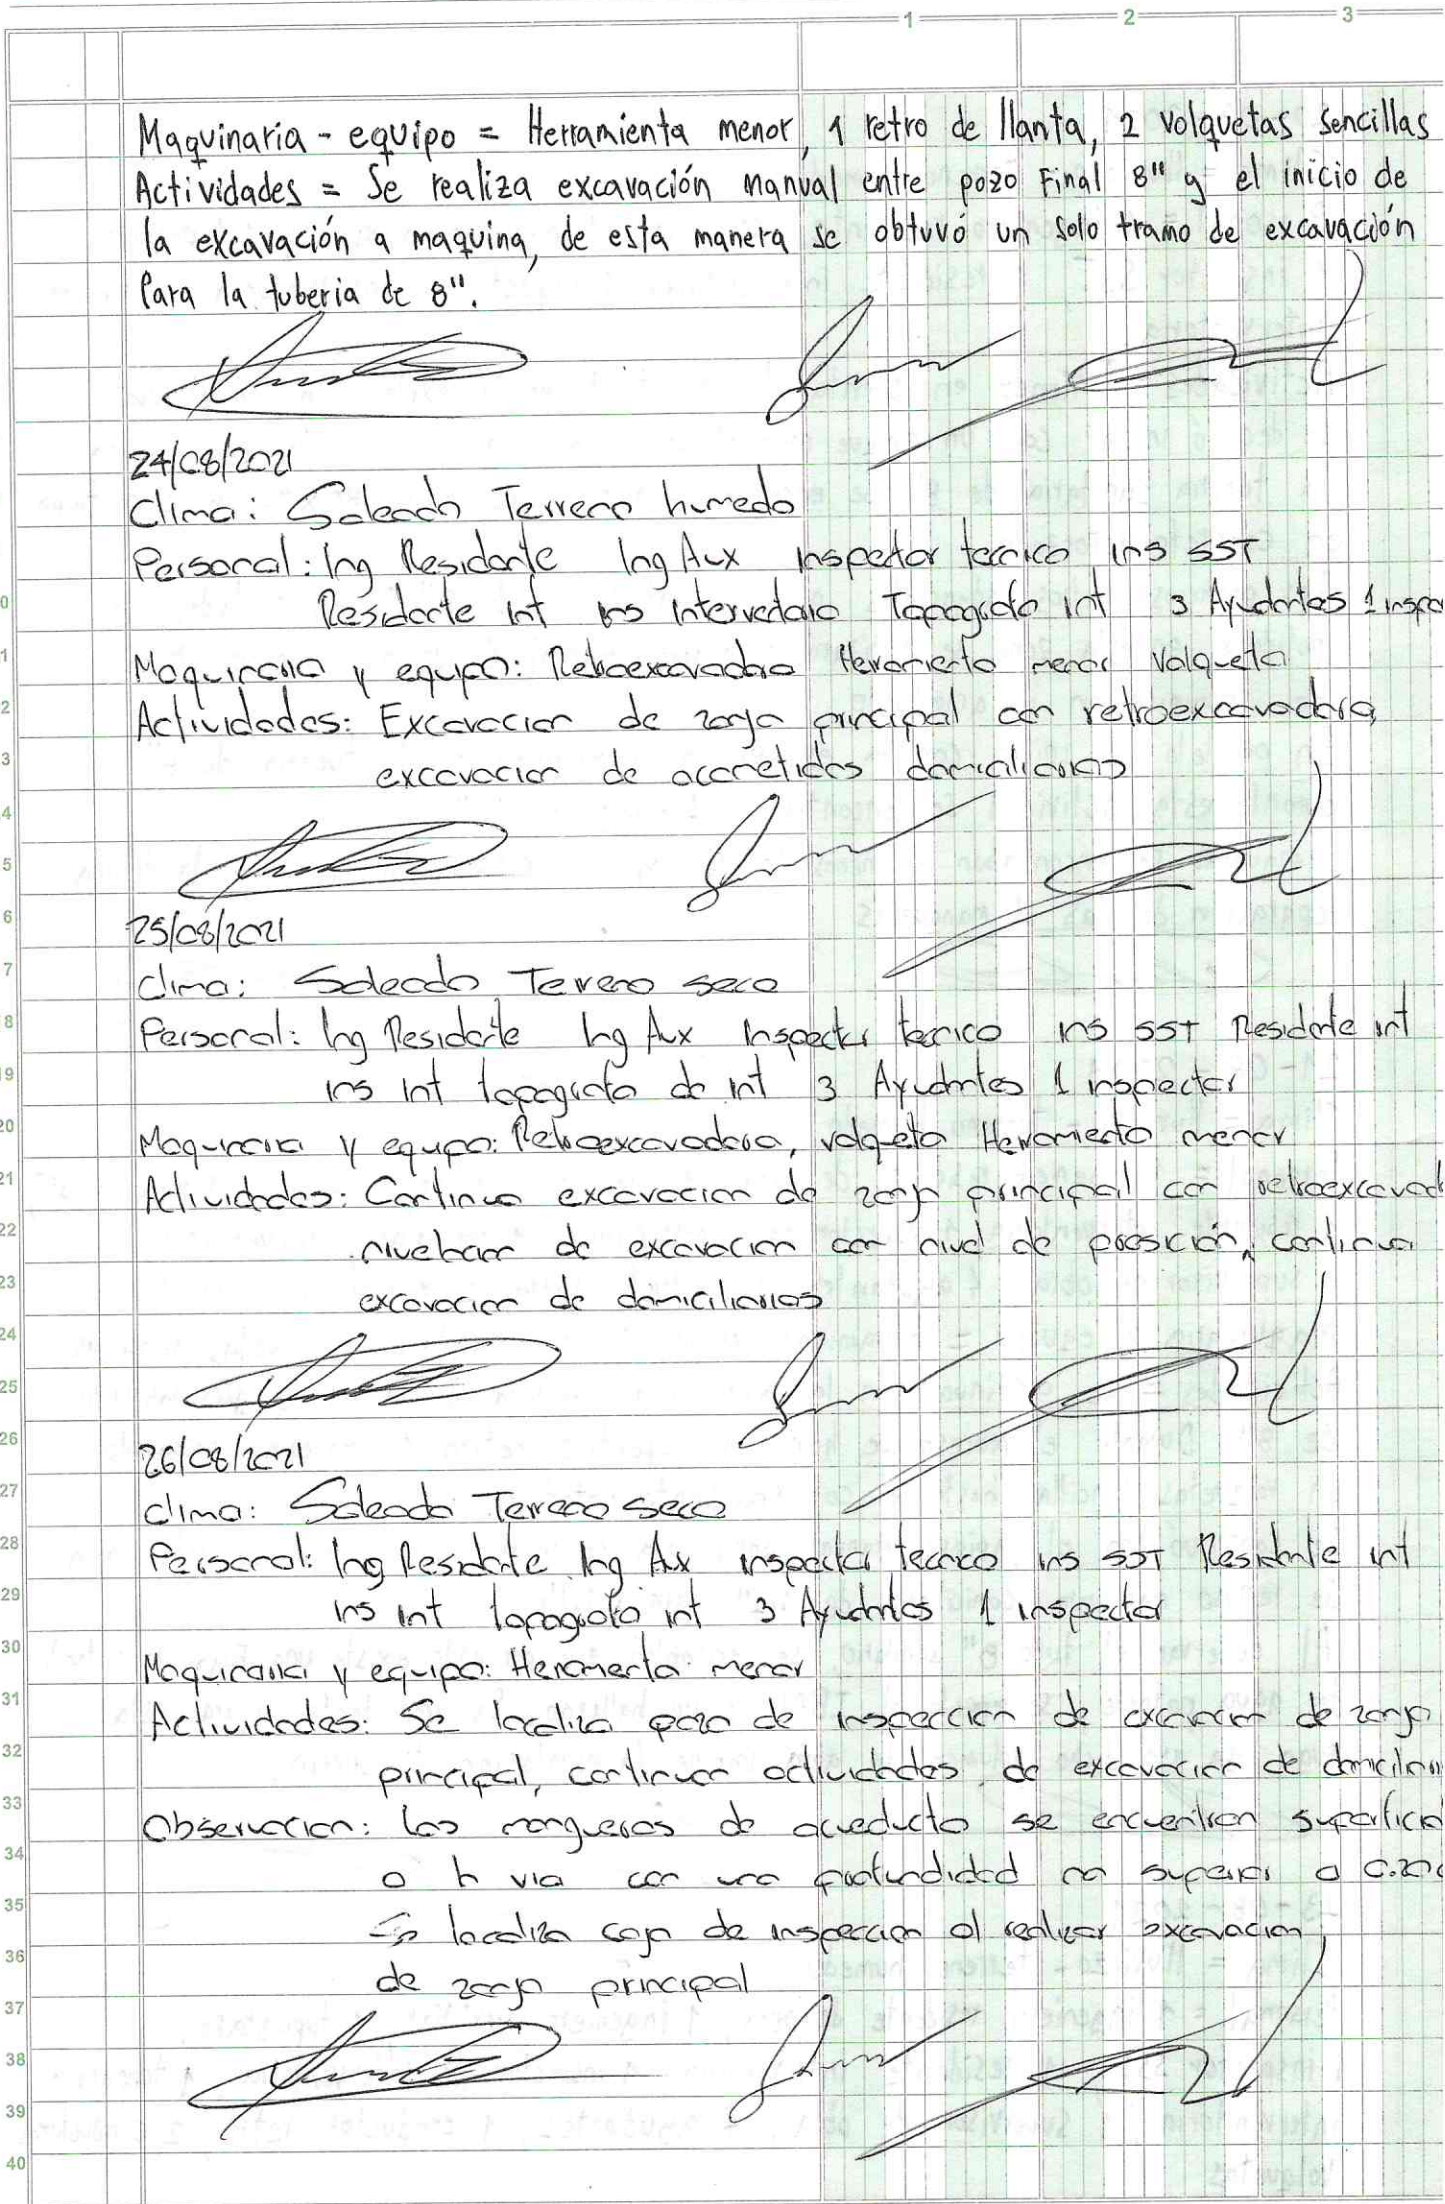 1 2 3
Maquinaria - equipo = Herramienta menor, 1 retro de llanta, 2 volquetas sencillas
Actividades = Se realiza excavación manual entre pozo Final 8" y el inicio de
la excavación a maquina, de esta manera se obtuvó un solo tramo de excavación
Para la tuberia de 8".
24/08/2021
Clima: Soleado Terreno humedo
Personal: Ing Residente Ing Aux Inspector tecnico ins SST
Residente int ins interventoria Topografo int 3 Ayudantes 1 inspe
Maquinaria y equipo: Retroexcavadora Herramienta menor Volqueta
Actividades: Excavacion de zanja principal con retroexcavadora,
excavacion de acometidas domiciliarias
25/08/2021
Clima: Soleado Terreno seco
Personal: Ing Residente Ing Aux Inspector tecnico ins SST Residente int
ins int topografo de int 3 Ayudantes 1 inspector
Maquinaria y equipo: Retroexcavadora, volqueta Herramienta menor
Actividades: Continua excavacion de zanja principal con retroexcavad
nivelacion de excavacion con nivel de precisión, continua
excavacion de domiciliarias
26/08/2021
Clima: Soleado Terreno seco
Personal: Ing Residente Ing Aux inspector tecnico ins SST Residente int
ins int topografo int 3 Ayudantes 1 inspector
Maquinaria y equipo: Herramienta menor
Actividades: Se localiza pozo de inspeccion de excavacion de zanja
principal, continuan actividades de excavacion de domiciliar
Observacion: las mangueras de acueducto se encuentran superficial
a la via con una profundidad no superior a 0.20
Se localiza caja de inspeccion al realizar excavacion
de zanja principal